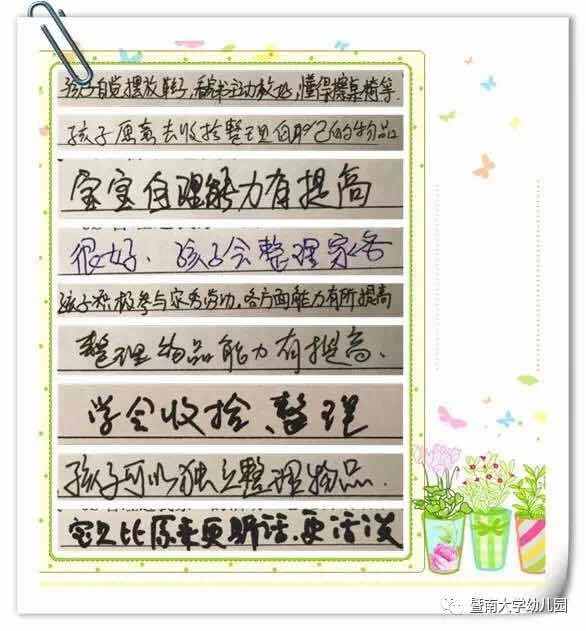 孩子自觉摆放鞋子,主动放好,懂得擦桌椅等.
孩子愿意去收拾整理自己的物品
宝宝自理能力有提高
很好、孩子会整理家务
孩子积极参与家务劳动,各方面能力有所提高
整理物品能力有提高、
学会收拾、整理
孩子可以独立整理物品.
比原来更听话.更活泼
暨南大学幼儿园